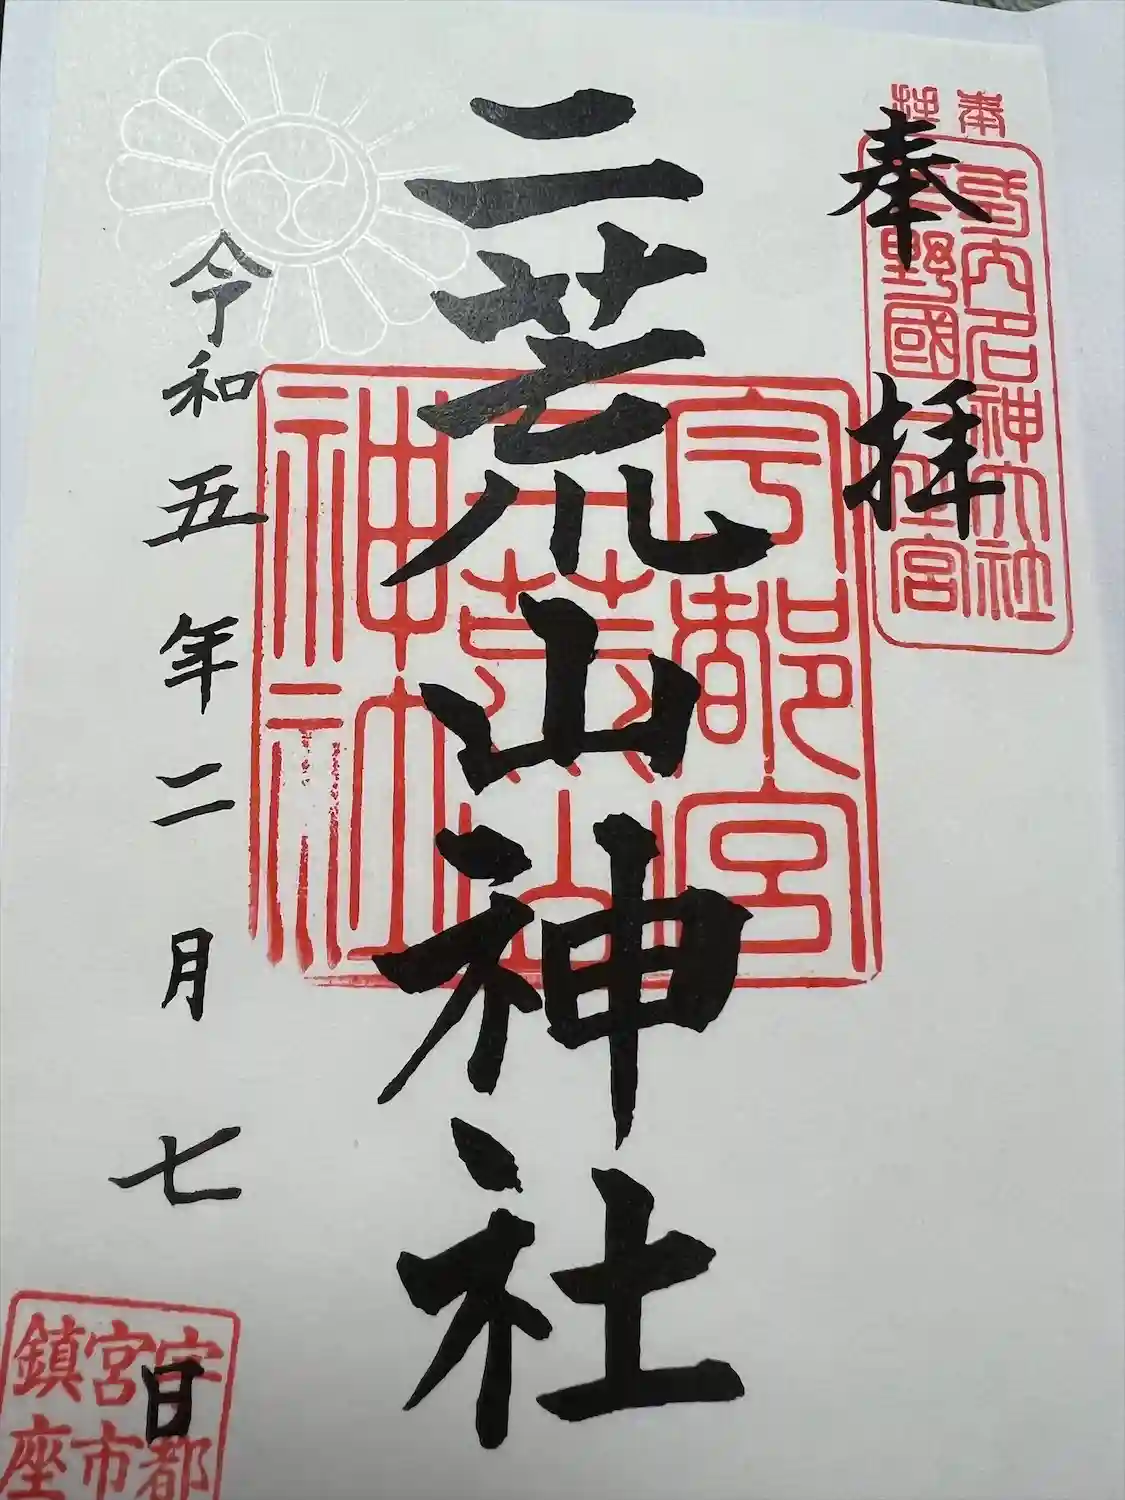 奉拝
式内名神大社
下野國一之宮
二荒山神社
宇都宮
二荒山
神社
令和五年二月七日
宇都
宮市
鎮座